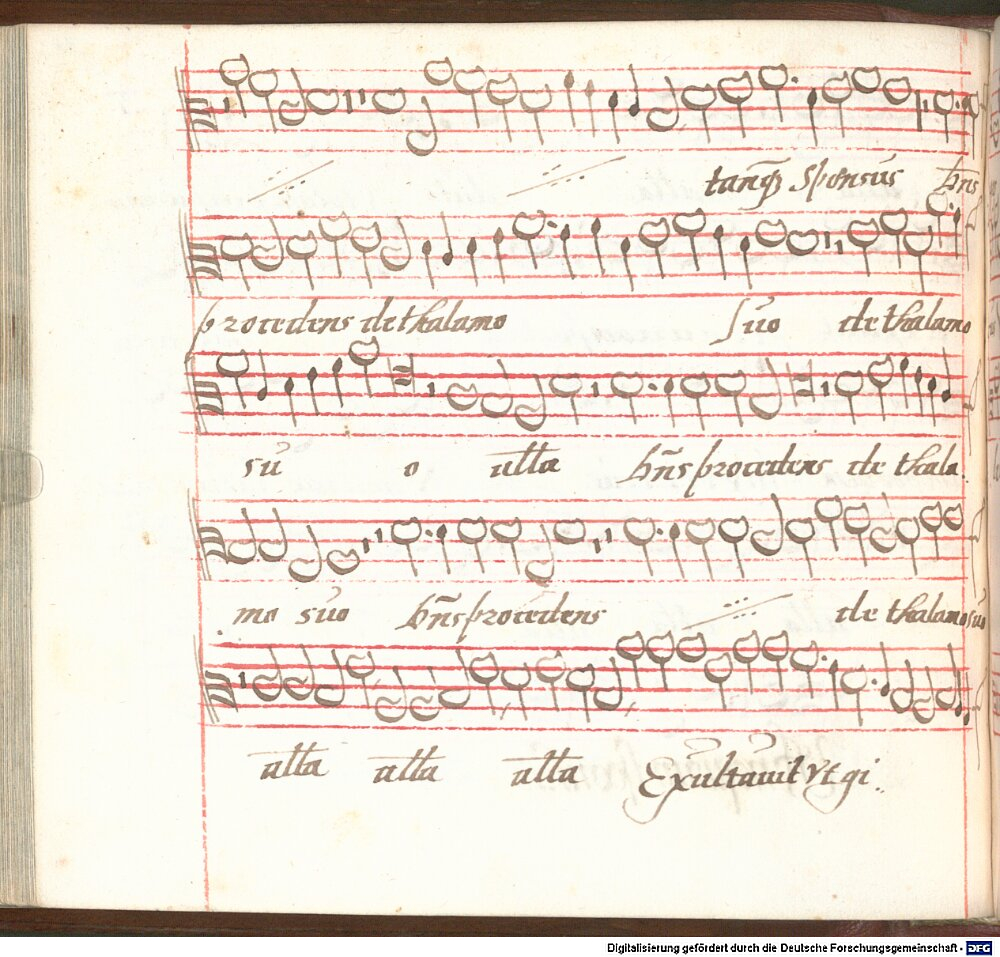 tanq̃ sponsus dn̄s
procedens de thalamo suo de thalamo
su o alla dn̄s procedens de thala
mo suo dn̄s procedens de thalamo suo
alla alla alla Exultauit vt gi..
Digitalisierung gefördert durch die Deutsche Forschungsgemeinschaft - DFG